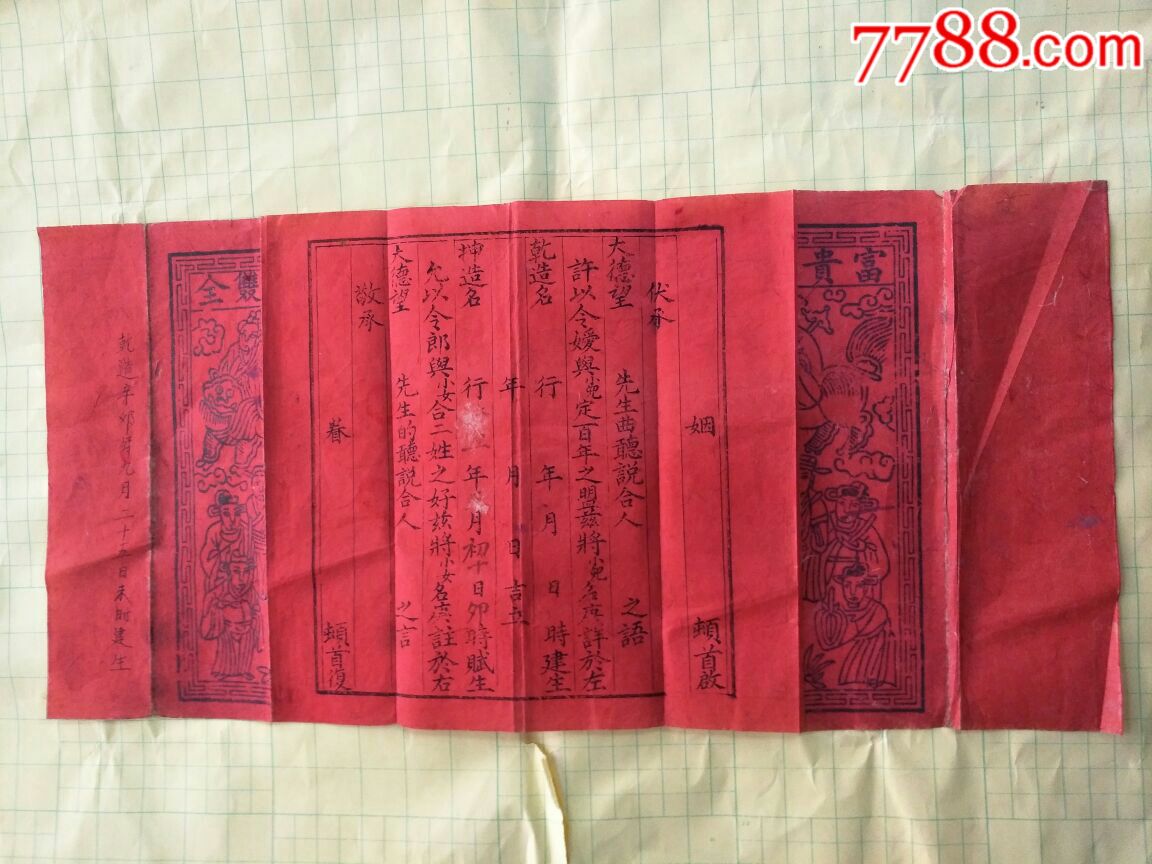 7788.com
富貴
姻 頓首啟
伏承
大德望 先生曲聽說合人 之語
許以令嬡與小兒定百年之盟茲將小兒名庚詳於左
乾造名 行 年 月 日 時建生
年 月 日吉立
坤造名 行 年 月初十日卯時賦生
允以令郎與小女合二姓之好茲將小女名庚註於右
大德望 先生的聽說合人 之言
敬承
眷 頓首復
雙全
乾造辛卯年九月二十五日未时建生